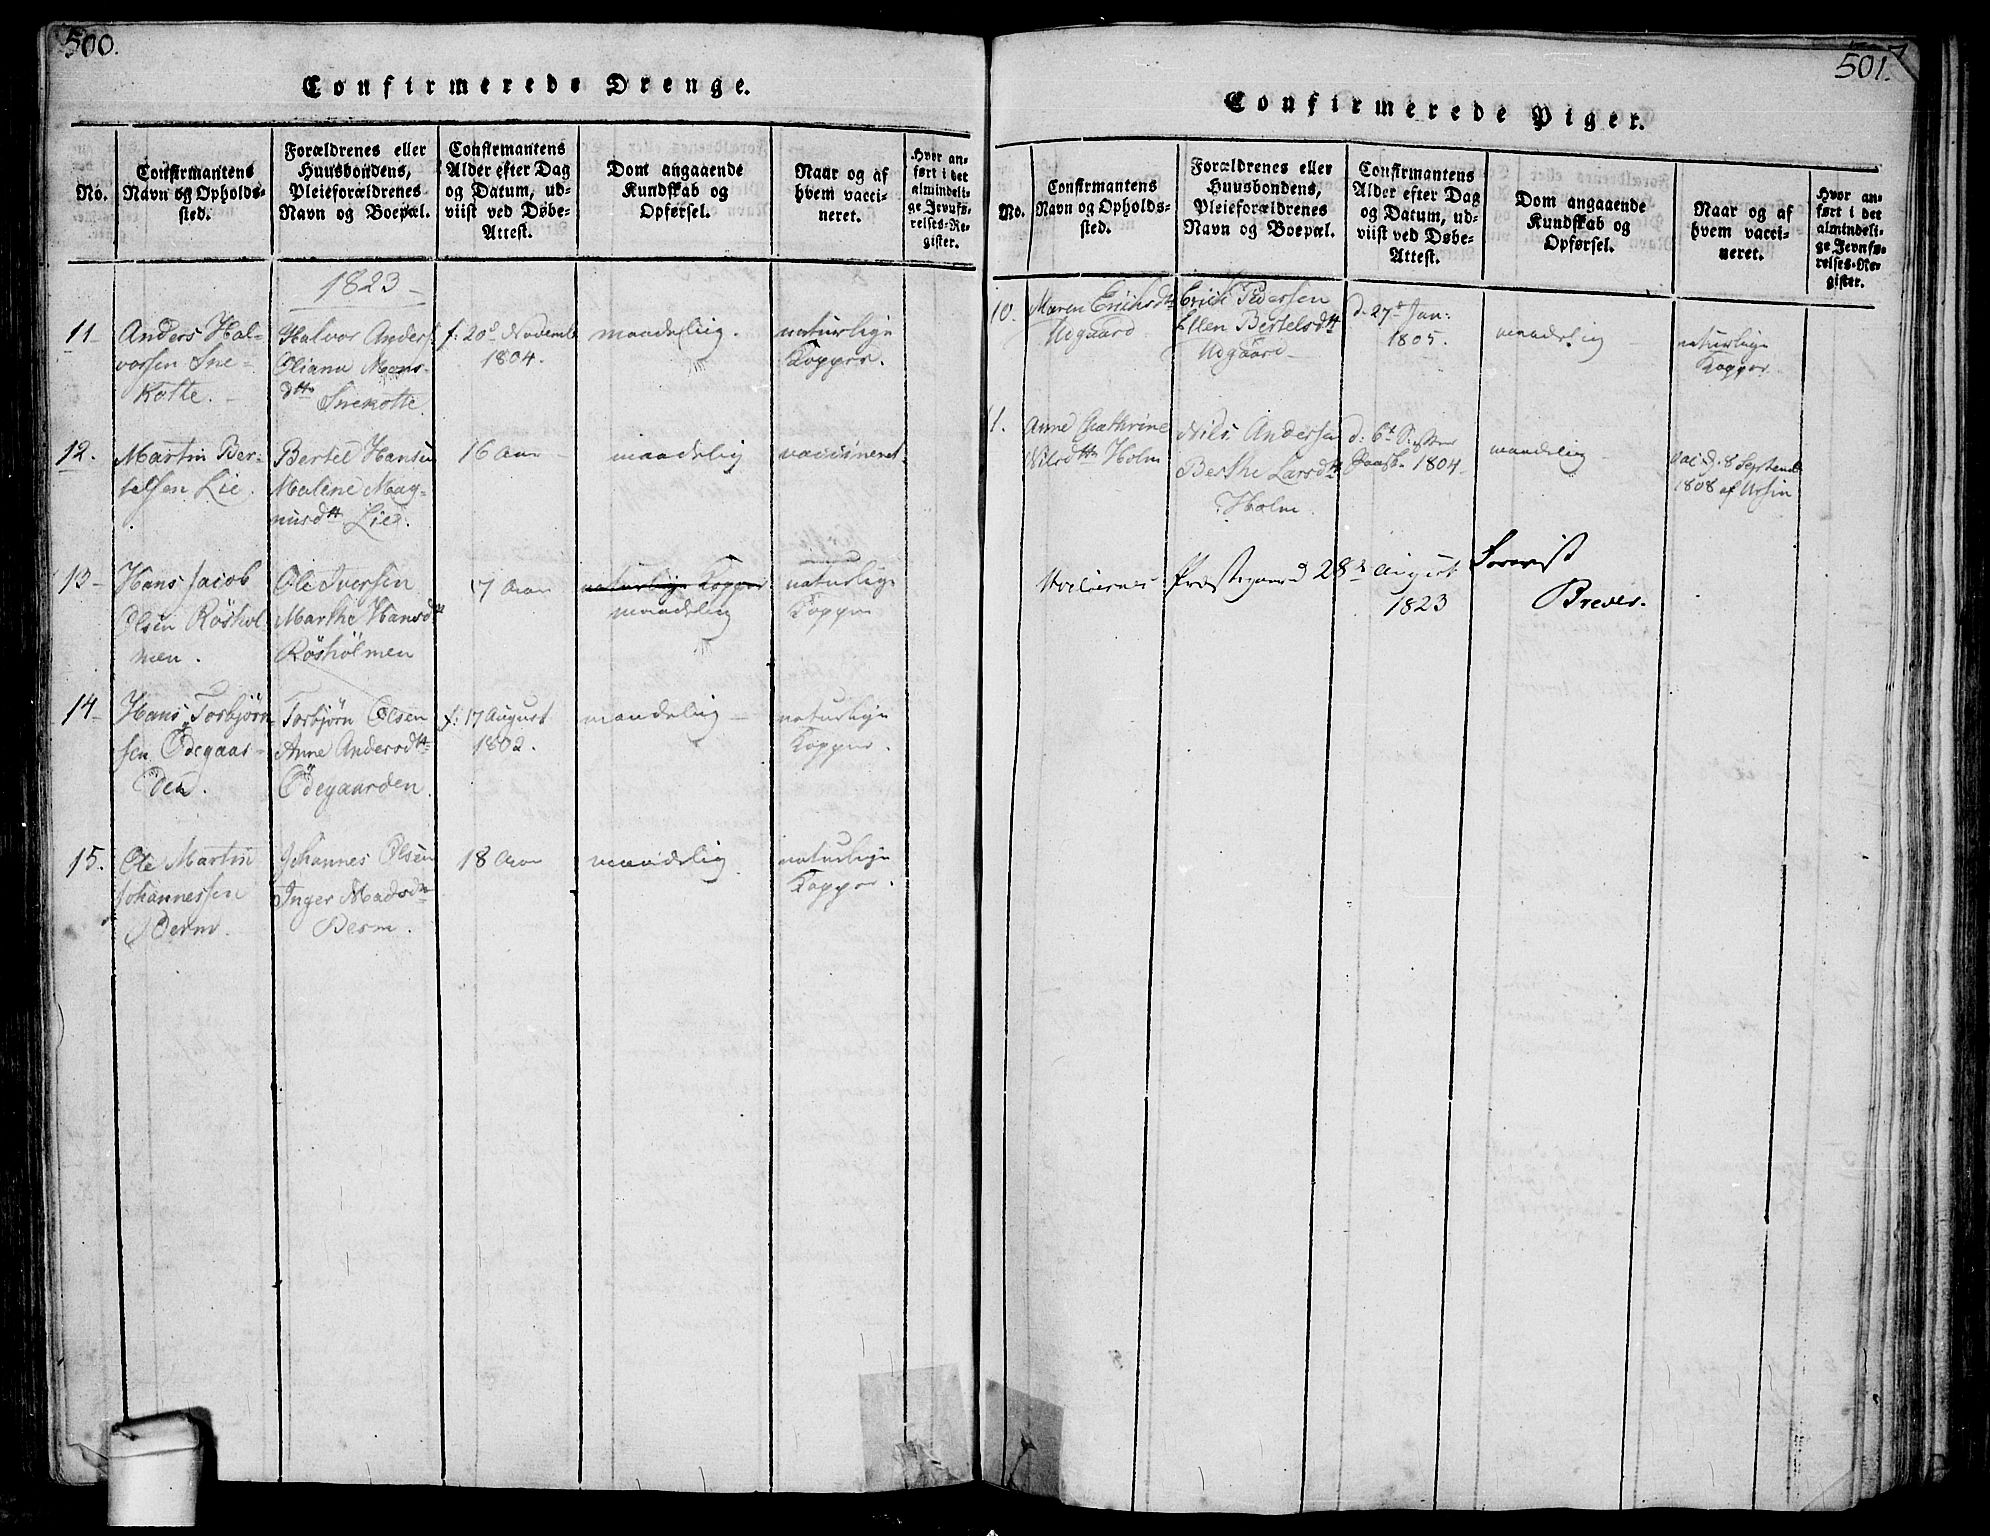 500.
Confirmerede Drenge.
No.
Confirmantens
Navn og Opholds-
sted.
Forældrenes eller
Huusbondens,
Pleieforældrenes
Navn og Boepæl.
Confirmantens
Alder efter Dag
og Datum, ud-
viist ved Døbe-
Attest.
Dom angaaende
Kundskab og
Opførsel.
Naar og af
hvem vacci-
neret.
Hvor an-
ført i det
almindeli-
ge Jevnfø-
relses-Re-
gister.
1823
11
Anders Hal-
vorsen Sne-
kotte.
Halvor Anders
Oliana Mons-
dtr
Snekotte.
f: 20d Novembr
1804.
maadelig.
naturlige
Kopper.
12.
Martin Ber-
telsen Lie.
Bertel Hansen
Malene Mag-
nusdtt Lie.
16 Aar
maadelig
vaccineret
13
Hans Jacob
Olsen Röshol-
men.
Ole Iversen
Marthe Hansdtt
Rösholmen
17 Aar
naturlige Kopper
maadelig
naturlige
Kopper
14
Hans Torbjörn
sen Ödegaar-
den.
Torbjörn Olsen
Anne Andersdtt
Ödegaarden.
f: 17 August
1802.
maadelig
naturlige
Kopper.
15.
Ole Martin
Johannessen
Berm.
Johannes Olsen
Inger Madsdtr
Berm.
18 Aar
maadelig
naturlige
Kopper.
501.
Confirmerede Piger.
No.
Confirmantens
Navn og Opholds-
sted.
Forældrenes eller
Huusbondens,
Pleieforældrenes
Navn og Boepæl.
Confirmantens
Alder efter Dag
og Datum, ud-
viist ved Døbe-
Attest.
Dom angaaende
Kundskab og
Opførsel.
Naar og af
hvem vacci-
neret.
Hvor an-
ført i det
almindeli-
ge Jevnfø-
relses-Re-
gister.
10.
Maren Erichsdtr
Udgaard
Erich Pedersen
Ellen Bertelsdtt
Udgaard
d. 27d Jan:
1805.
maadelig
naturlige
Kopper.
11.
Anne Cathrine
Nilsdtr Holm
Nils Andersen
Berthe Larsdtr
Holm.
d: 6d S. efter
Paask. 1804
maadelig
vac: d. 8 Septemb
1808 af
Præstegaard 28d August
1823
Forevist